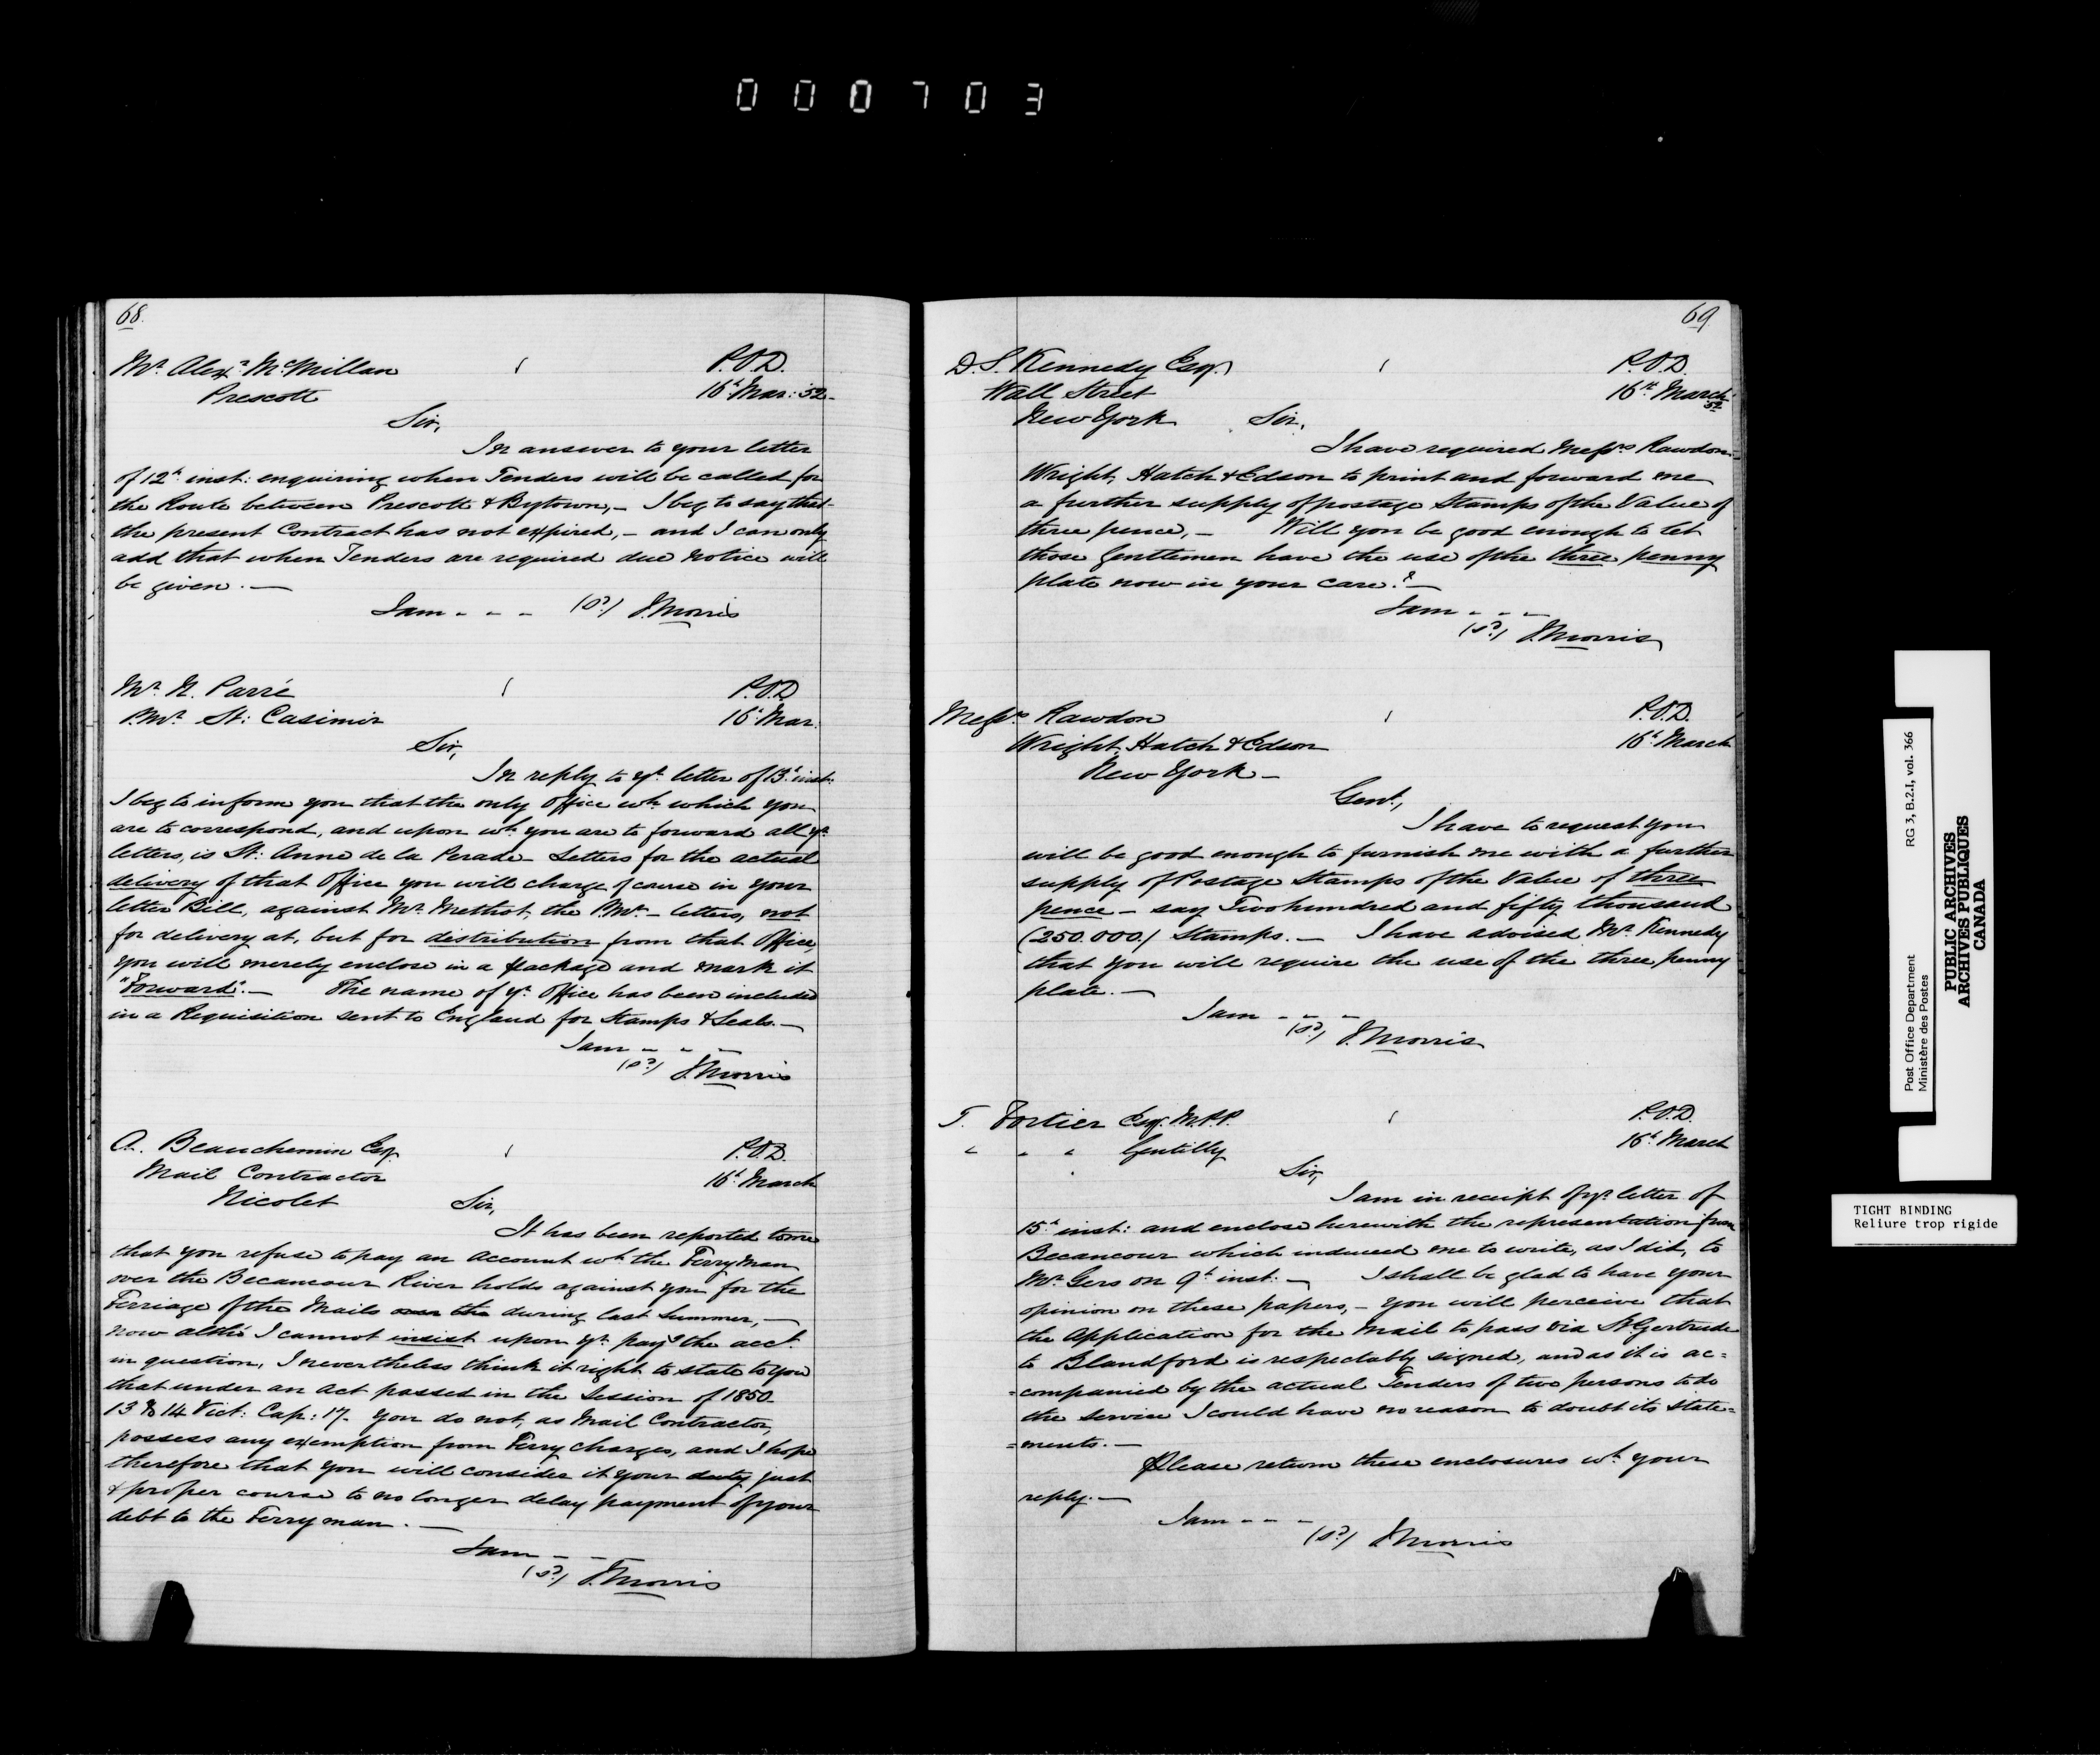 000703
68.
Mr. Alexr. McMillan
P.O.D.
Prescott
16h. Mar: '52.
Sir,
In answer to your letter
of 12h. inst: enquiring when Tenders will be called for
the Route between Prescott & Bytown,- I beg to say that
the present Contract has not expired, - and I can only
add that when Tenders are required due Notice will
be given. -
I am - - - (sd) J. Morris
Mr. N. Parré
P.O.D
P.Mr. St: Casimir
16h. Mar.
Sir,
In reply to yr. letter of 13h. inst:
I beg to inform you that the only Office wh. which you
are to correspond, and upon wh. you are to forward all yr.
letters, is St: Anne de la Perade - Letters for the actual
delivery of that Office you will charge of course in your
letter Bill, against Mr. Methot, the P.Mr. - letters, not
for delivery at, but for distribution from that Office,
you will merely enclose in a package and mark it
"Forward". - The name of yr. Office has been included
in a Requisition sent to England for Stamps & Seals. -
I am - - -
(sd) J. Morris
A. Beauchemin Esq.
P.O.D.
Mail Contractor
16h. March
Nicolet
Sir,
It has been reported to me
that you refuse to pay an account wh. the Ferryman
over the Becancour River holds against you for the
Ferriage of the Mails over the during last Summer, -
now altho' I cannot insist upon yr. payg the acct.
in question, I nevertheless think it right to state to you
that under an act passed in the Session of 1850.
13 & 14 Vict: Cap: 17. you do not, as Mail Contractor,
possess any exemption from Ferry charges, and I hope
therefore that you will consider it your duty just
& proper course to no longer delay payment of your
debt to the Ferryman. -
I am - -
(sd) J. Morris
69
D. S. Kennedy Esq.
P.O.D.
Wall Street
16th. March
'52
New York
Sir,
I have required Messrs Rawdon
Wright, Hatch & Edson to print and forward me
a further supply of postage Stamps of the Value of
three pence, - Will you be good enough to let
those Gentlemen have the use of the three penny
plate now in your care? -
I am - - -
(sd) J. Morris
Messrs. Rawdon
P.O.D.
Wright, Hatch & Edson
16h. March
New York -
Gent.,
I have to request you
will be good enough to furnish me with a further
supply of Postage Stamps of the Value of three
pence - say Two hundred and fifty thousand
(250.000.) Stamps. - I have advised Mr. Kennedy
that you will require the use of the three penny
plate. -
I am - - -
(sd) J. Morris
T. Fortier Esq. M.P.P.
P.O.D.
" " " Gentilly
16h. March
Sir,
I am in receipt of yr. letter of
15h. inst: and enclose herewith the representation from
Becancour which induced me to write, as I did, to
Mr. Gers on 9h. inst: - I shall be glad to have your
opinion on these papers, - you will perceive that
the Application for the Mail to pass via St. Gertrude
to Blandford is respectably signed, and as it is ac=
=companied by the actual Tenders of two persons to do
the service I could have no reason to doubt its state=
=ments. -
Please return these enclosures wh. your
reply. -
I am - - -
(sd) J. Morris
Post Office Department RG 3, B.2.I, vol. 366
Ministère des Postes
PUBLIC ARCHIVES
ARCHIVES PUBLIQUES
CANADA
TIGHT BINDING
Reliure trop rigide